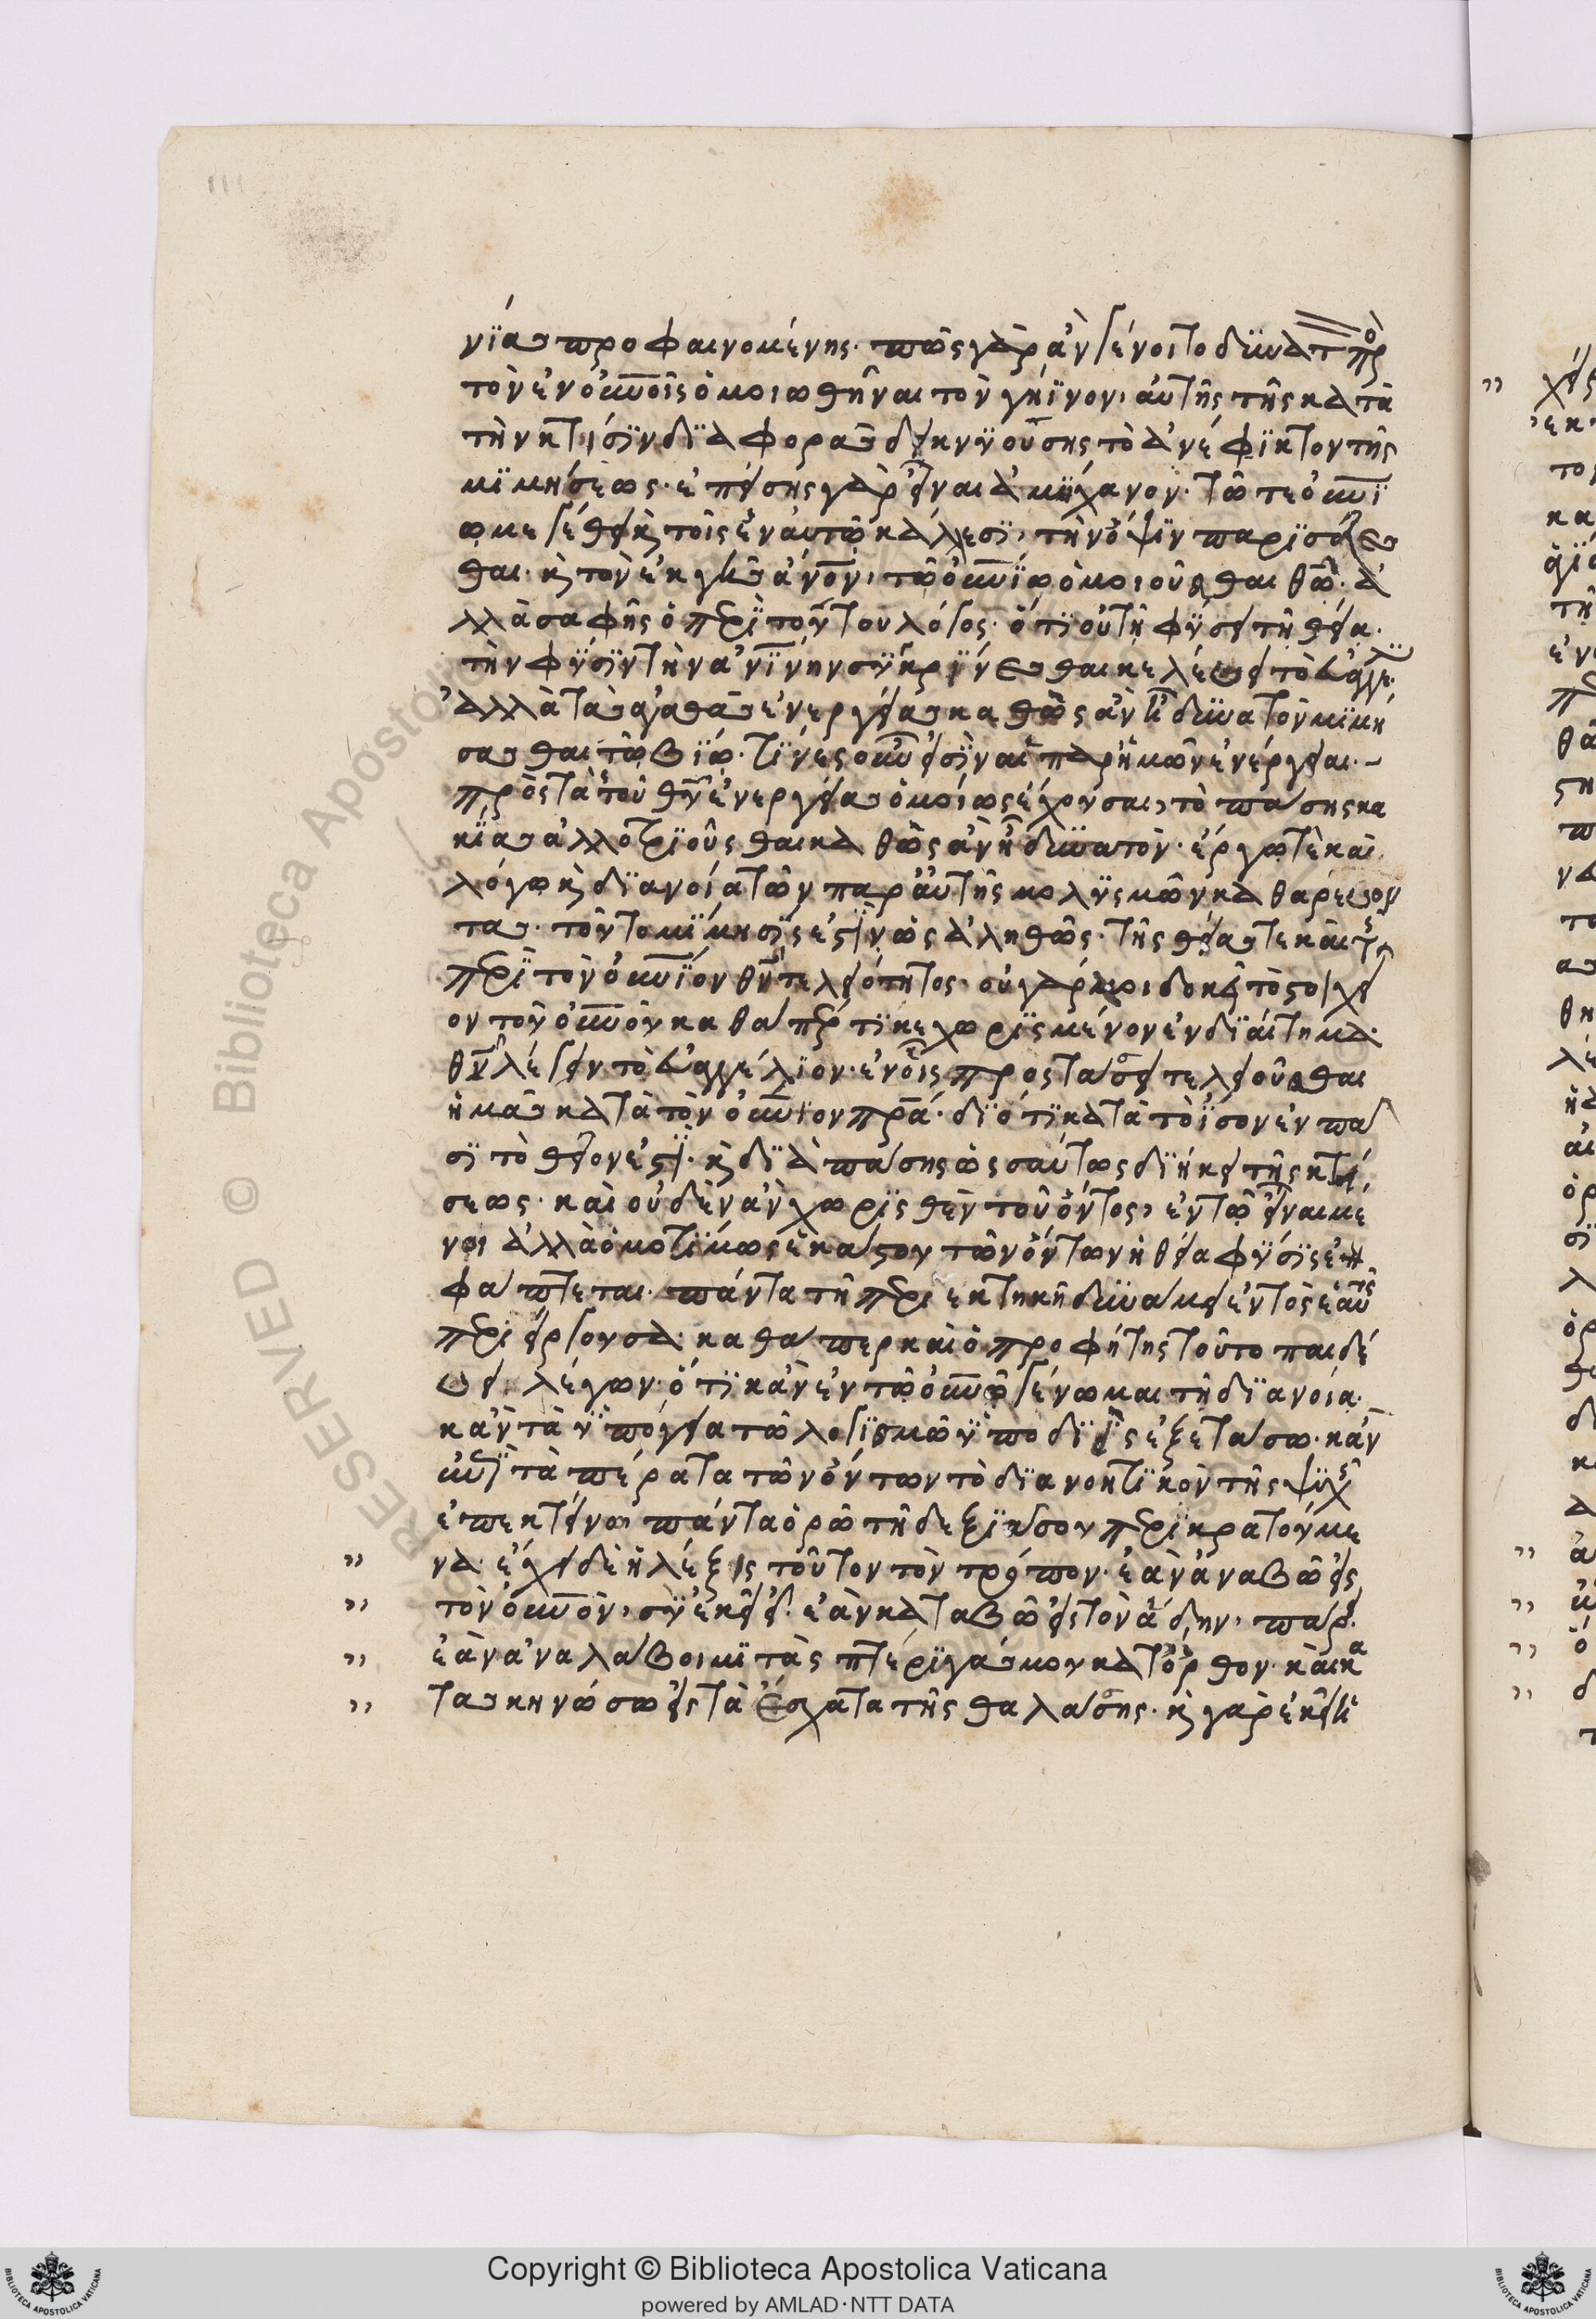 111
νΐας προφαινομένης· πῶς γὰρ ἂν γένοιτο δυνατ πρὸ
τὸν ἐν οὐνοῖς ὁμοιωθῆναι τὸν γήϊνον, αὐτῆς τῆς κατὰ
τὴν κτίσϊν δϊαφορᾶς δεικνϋούσης τὸ ἀνέφϊκτον τῆς
μϊμήσεως· ἐπίσης γὰρ εἶναι ἀμήχανον· τῶ τε οὐνΐ
ω μεγέθει κ τοῖς ἐν αὐτῶ κάλλεσϊ, τὴν ὄψϊν παρϊσάζεσ
θαι· κ τὸν ἐκ γῆς ἀνον, τῶ οὐνΐω ὁμοιοῦσθαι θῶ· ἀ
λλὰ σαφὴς ὁ πρὶ τούτου λόγος· ὅτϊ οὐ τῆ φύσει τῆ θεία·
τὴν φύσϊν τὴν ἀνΐνην συγκρίνεσθαι κελεύει τὸ εὐάγγε·
ἀλλὰ τὰς ἀγαθὰς ἐνεργείας καθὼς ἂν ἦ δυνατὸν μϊμή
σασθαι τῶ βΐω· τΐνες οὖν εἰσϊν αἱ παρ ἡμῶν ἐνέργειαι·
πρὸς τὰς τοῦ θυ ἐνεργείας ὁμοίως ἔχουσαι, τὸ πάσης κα
κΐας ἀλλοτρϊοῦσθαι καθὼς ἂν ἦ δυνατὸν· ἔργω τὲ καὶ
λόγω κ δϊανοία τῶν παρ αὐτῆς μολϋσμῶν καθαρεύον
τας· τοῦτο μΐμησϊς ἐστϊν ὡς ἀληθῶς· τῆς θείας τε καὶ τῆς
πρὶ τὸν οὐνΐον θν τελειότητος· οὐ γάρ μοι δοκεῖ τὸ στοιχεῖ
ον τοῦ οὐνοῦ καθάπρ τϊ κεχωρϊσμένον ἐνδϊαίτημα·
θυ λέγειν τὸ εὐαγγέλϊον· ἐν οἷς προστάσσει τελειοῦσθαι
ἡμᾶς κατὰ τὸν οὐνιον πρα· δϊότϊ κατὰ τὸ ἴσον ἐν πᾶ
σϊ τὸ θεῖον ἐστϊ· κ δϊὰ πάσης ὡσαύτως δϊήκει τῆς κτί
σεως· καὶ οὐδὲν ἂν χωρϊσθὲν τοῦ ὄντος, ἐν τῶ εἶναι μέ
νοι ἀλλὰ ὁμοτΐμως ἑκάστου τῶν ὄντων ἡ θεία φύσϊς ἐ
φάπτεται· πάντα τῆ πρι εκτηκῆ δυνάμει ἐντὸς ἑαυτῆς
πρι είργουσα· καθάπερ καὶ ὁ προφήτης τοῦτο παιδεύ
ει λέγων· ὅτϊ κἂν ἐν τῶ οὐνῶ γένωμαι τῆ δϊανοία·
κἂν τὰ ϋπόγεια τῶ λογϊσμῶ ϋποδϊεὶς ἐξετάσω· κἂν
τὰ πέρατα τῶν ὄντων τὸ δϊανοητϊκὸν τῆς ψυχῆς
ἐπεκτείνω πάντα ὁρῶ τῆ δεξϊᾶ σου πρικρατούμε
να· ἔχει δὲ ἡ λέξις τοῦτον τὸν τρόπον· ἐὰν ἀναβῶ εἰς
τὸν οὐνον, σὺ ἐκεῖ εἶ· ἐὰν καταβῶ εἰς τὸν ἅδην, πάρει·
ἐὰν ἀναλάβοιμϊ τὰς πτέρϊγάς μου κατ ὄρθον· καὶ κα
τασκηνώσω εἰς τὰ ἔσχατα τῆς θαλάσσης· κ γὰρ ἐκεῖ ἡ
Copyright © Biblioteca Apostolica Vaticana
powered by AMLAD·NTT DATA